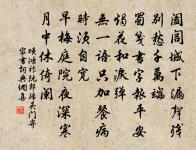 闔閭城下漏聲殘
別愁千萬端
蜀箋書字報平安
燭花和淚彈
無一語只加餐病
時須自寬
早梅庭院夜深寒
月中休倚闌
項鴻祚阮郎歸吳門寄
家書詞典網